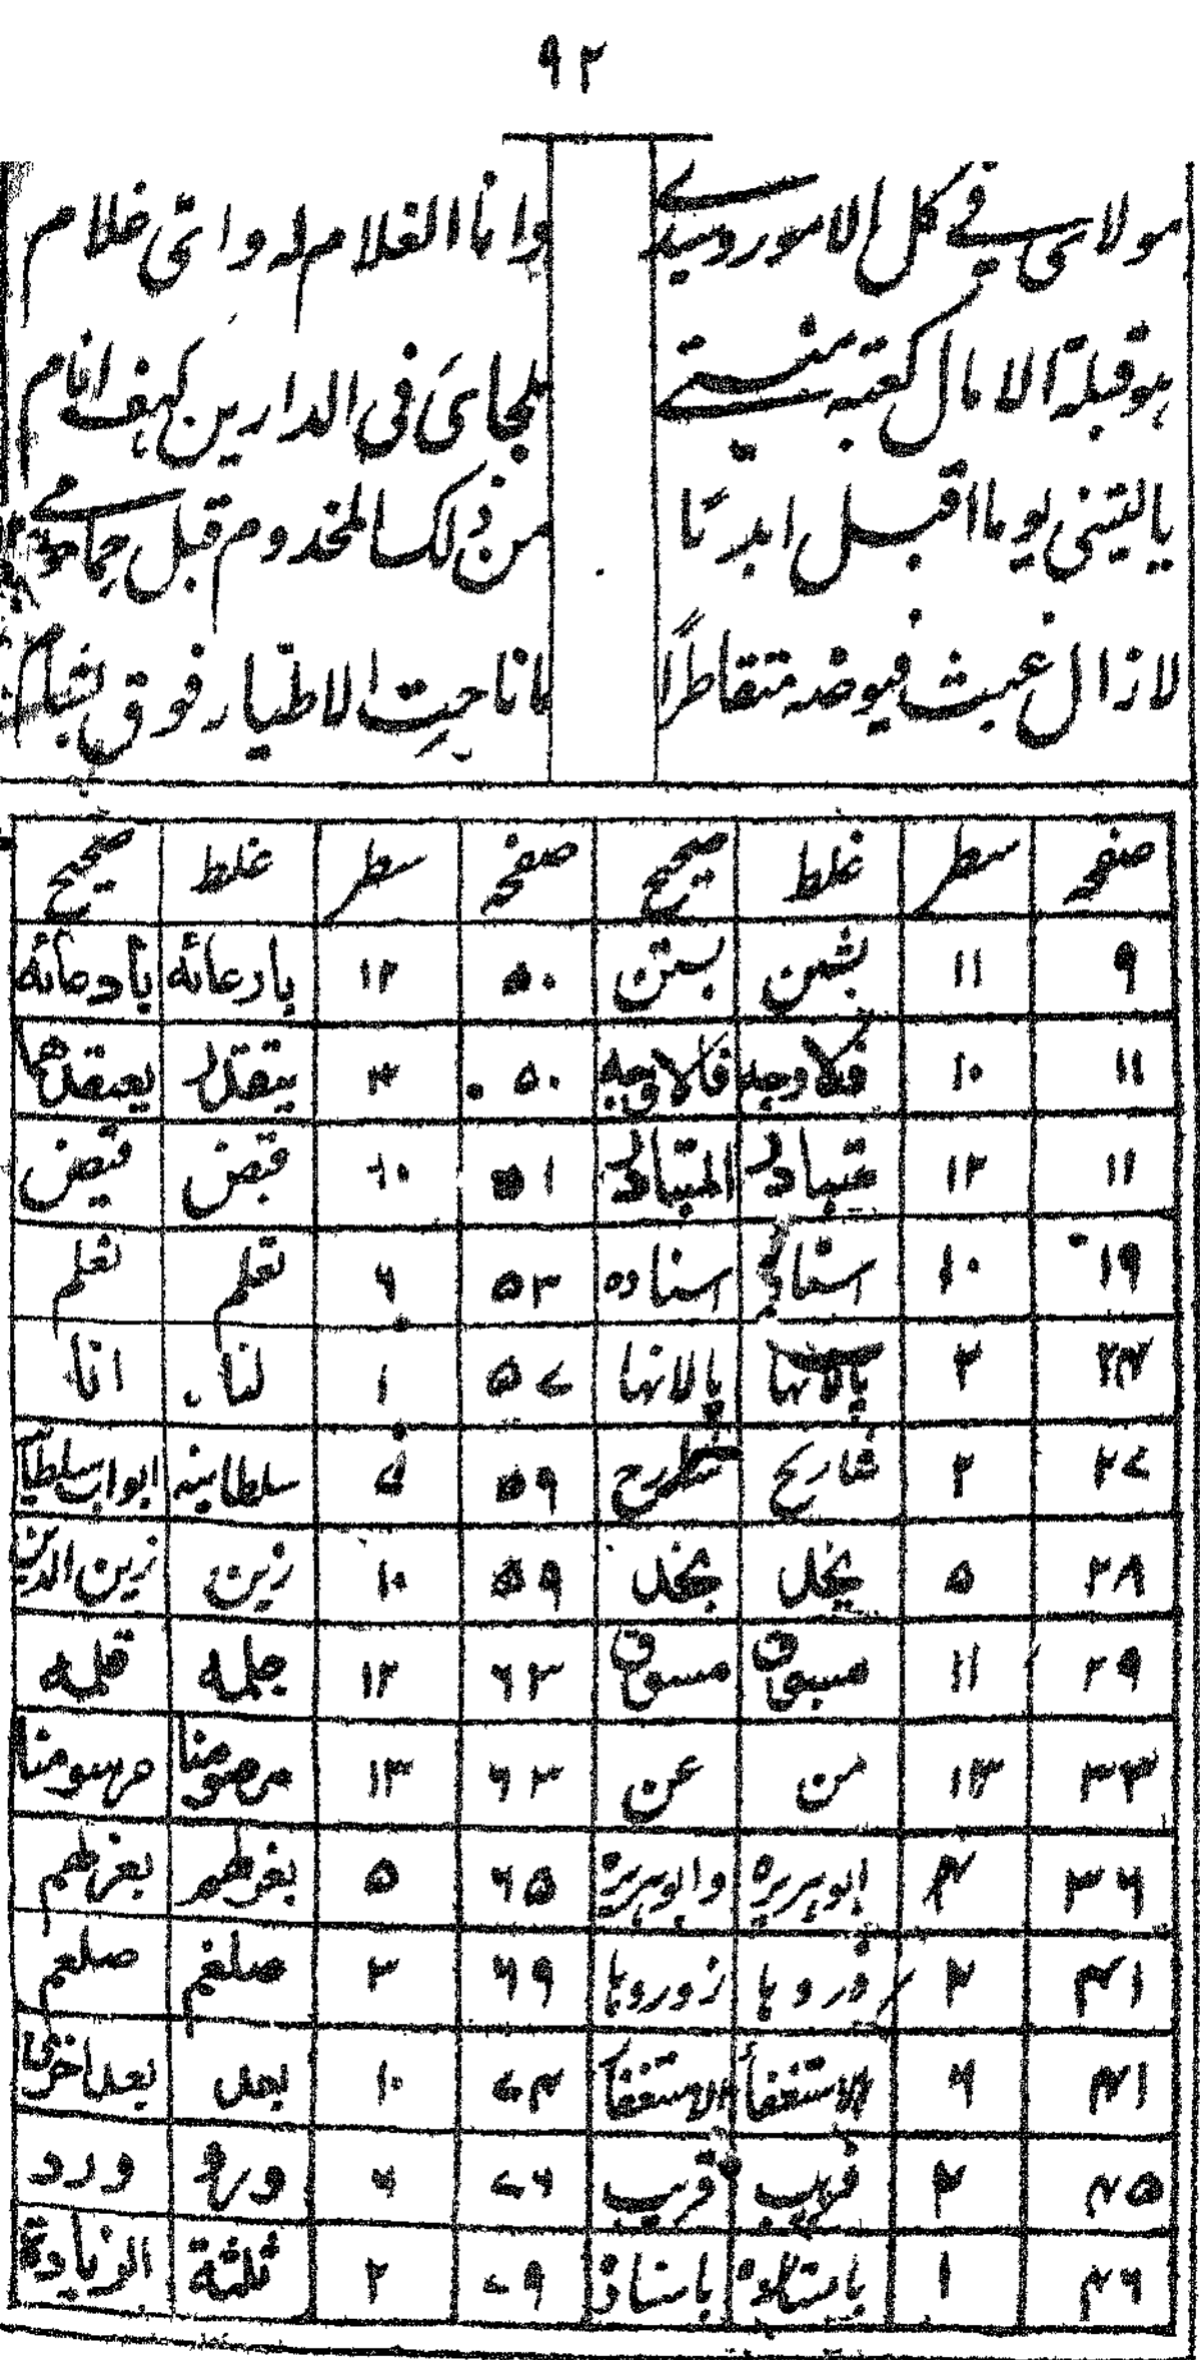 ۹۲
مولائی فی کل الامور وسیدے وانا الغلام له وانی غلام
ہو قبلة الامال کعبة منیتے ملجای فی الدارین کہف انام
یا لیتنی یوما اقبل ابدتا من ذلک المخدوم قبل حمامے
لازال غیث فیوضه متقاطرًا ما ناحت الاطیار فوق بشام
صفحہ سطر غلط صحیح صفحہ سطر غلط صحیح
۹ ۱۱ بشین بستن ۵۰ ۱۲ بادعائه بادعائه
۱۱ ۱۰ فلاوجه فالاوجه ۵۰ ۳ يتقلد يعتقدهما
۱۱ ۱۲ متبادر المتبادر ۵۱ ۱۰ قبض قيض
۱۹ ۱۰ اسناد اسناده ۵۳ ۶ تعلم نعلم
۲۴ ۲ بالانها بالانها ۵۷ ۱ لنا انا
۲۷ ۲ شارح ۵۹ سلطانيه ابواب سلطانيه
۲۸ ۵ يخل بخل ۵۹ ۱۰ زين زين الدين
۲۹ ۱۱ مسبوق مسوق ۶۳ ۱۲ جلمه قلمه
۳۳ ۱۳ من عن ۶۳ ۱۳ مرصومنا مرسومنا
۳۶ ۴ ابوہریرہ وابوہریرہ ۶۵ ۵
۴۱ ۲ ۶۹ ۳ صلغم صلعم
۴۱ ۶ الاستغفا الاستغفا ۷۴ ۱۰ بعد بعد اخری
۴۵ ۲ قریب ۷۶ ۶ ورو ورد
۴۶ ۱ باستاد ۷۹ ۲ ثلثة الزيادة